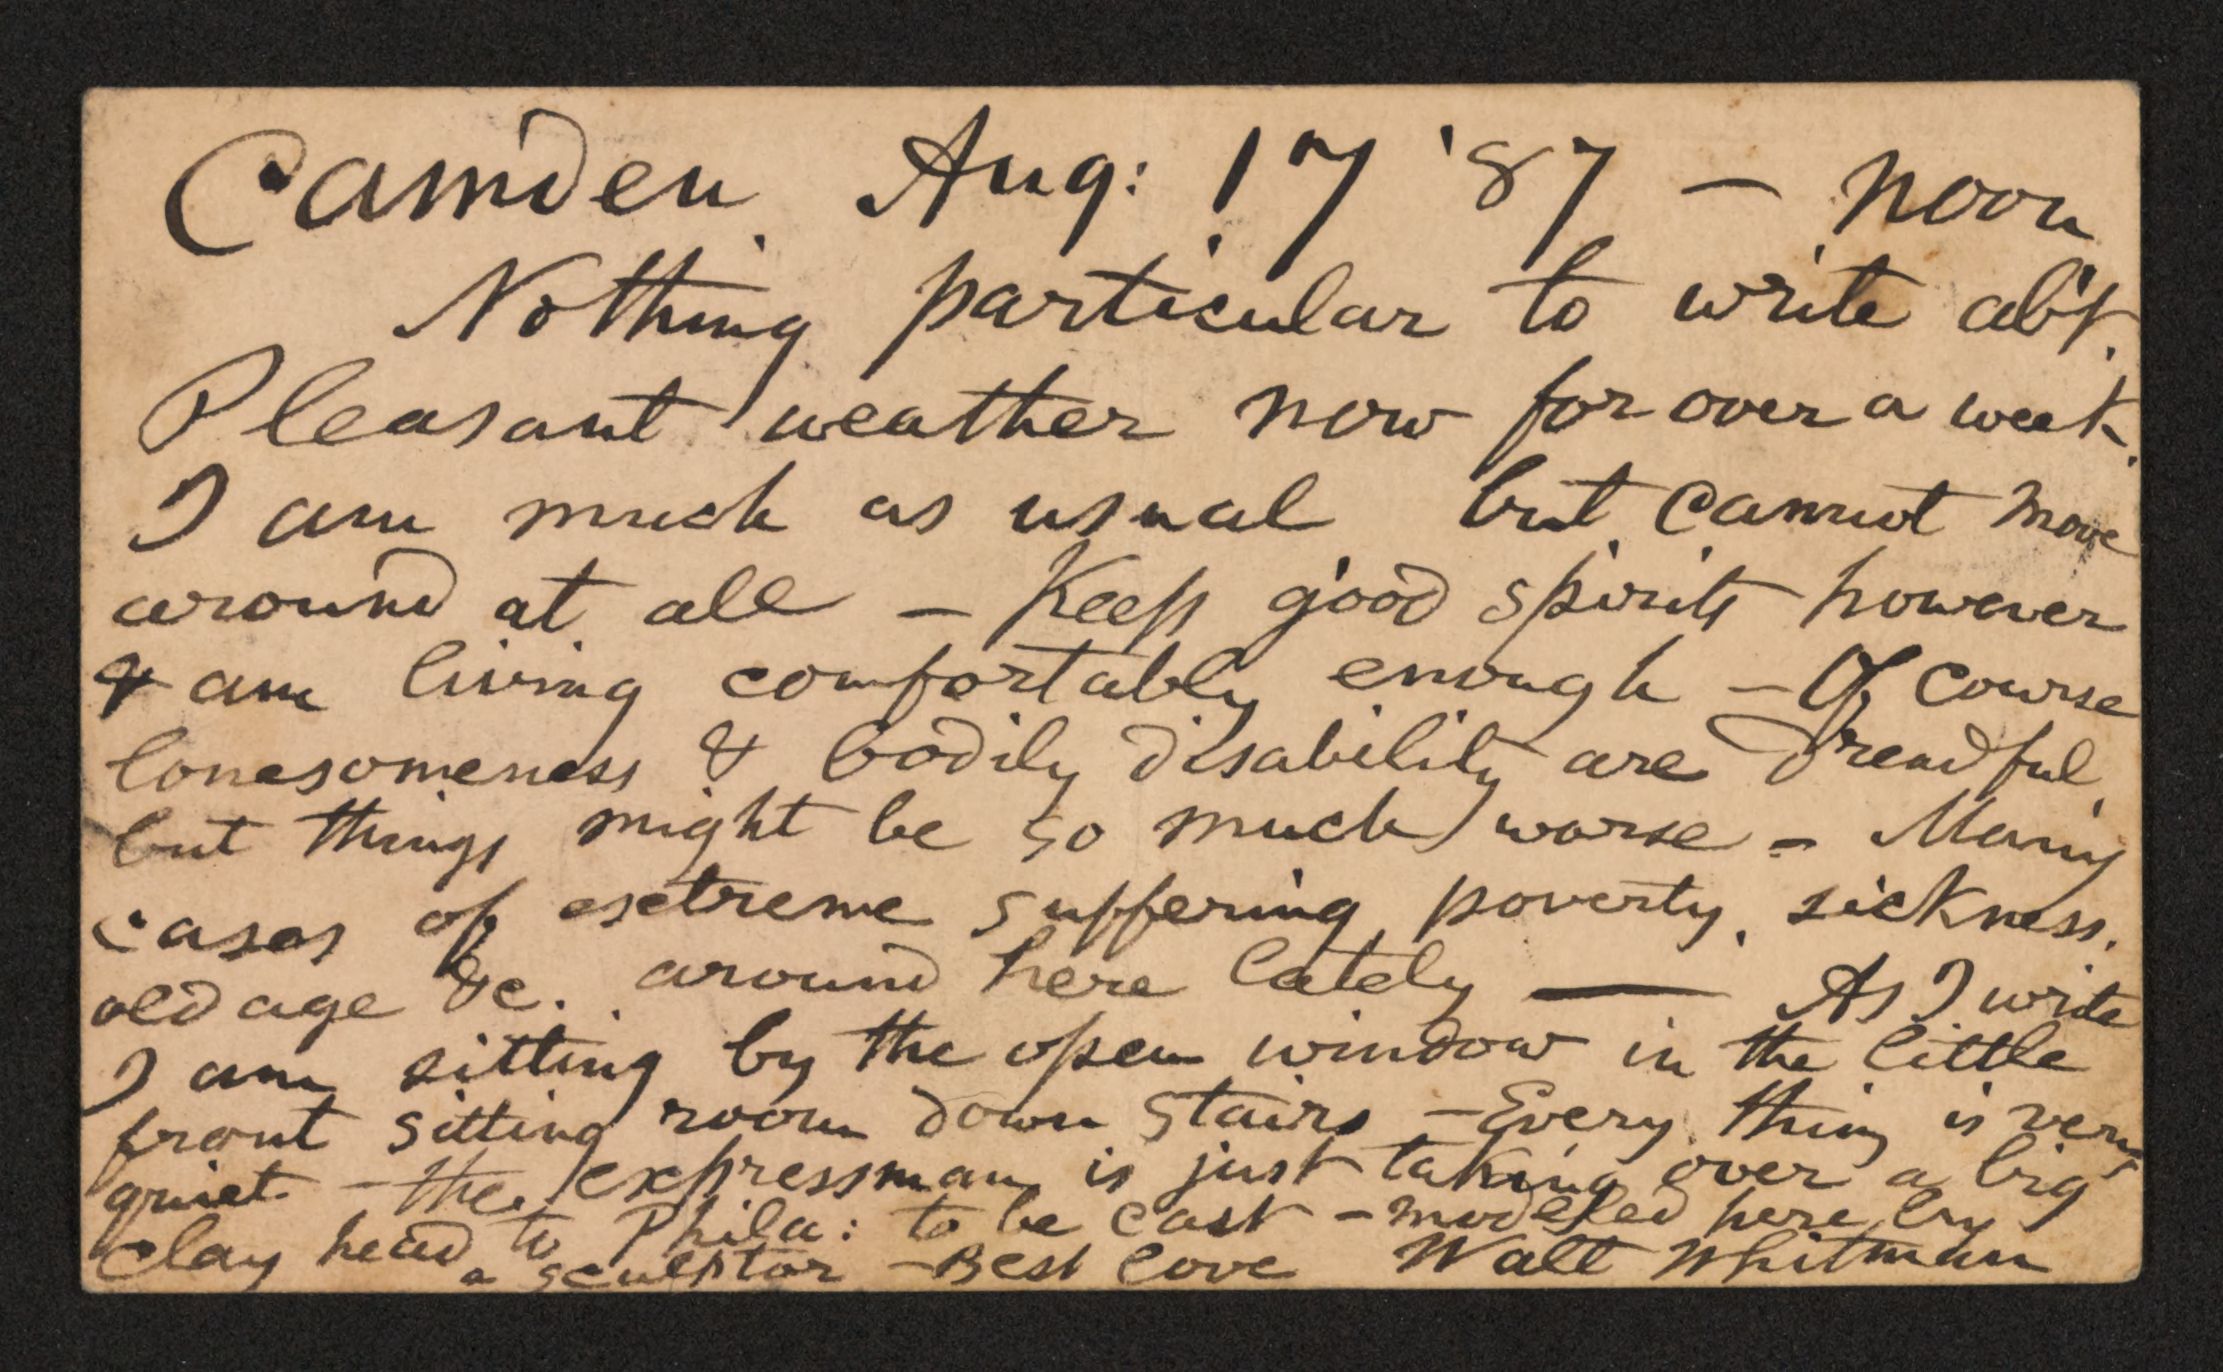 Camden Aug: 17 '87 — noon
Nothing particular to write ab't.
Pleasant weather now for over a week.
I am much as usual but cannot move
around at all — Keep good spirits however
& am living comfortably enough — Of course
lonesomeness & bodily disability are dreadful,
but things might be so much worse — Many
cases of extreme suffering, poverty, sickness,
old age &c. around here lately — As I write
I am sitting by the open window in the little
front sitting room down stairs — Every thing is very
quiet — the expressman is just taking over a big
clay head to Phila: to be cast — modeled here by
a sculptor — Best love Walt Whitman